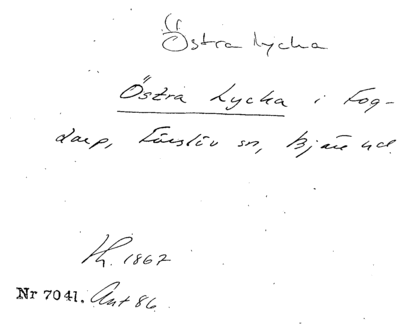 Östra Lycka
Östra Lycka i Fog-
darp, Förslöv sn, Bjäre hd.
Th. 1867
Nr 7041. Ant 86.